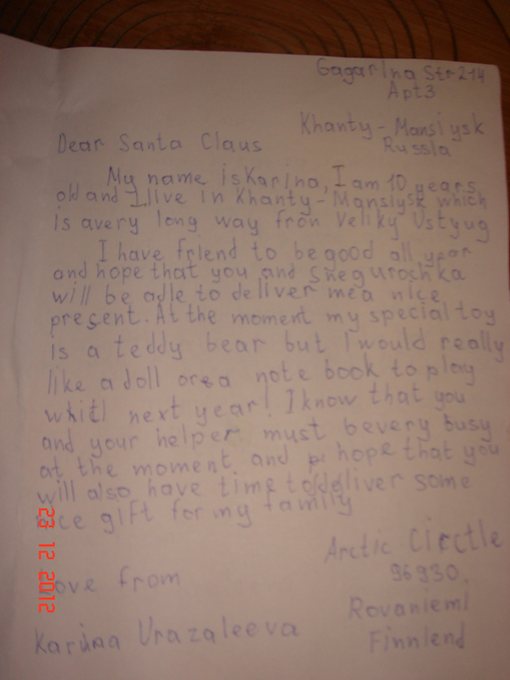 Gagarina Str 214
Apt 3
Khanty-Mansiysk
Russia
Dear Santa Claus
My name is Karina, I am 10 years
old and I live in Khanty-Mansiysk which
is avery long way fron Veliky Ustyug
I have friend to be good all year
and hope that you and Snegurochka
will be adle to deliver me a nice
present. At the moment my special toy
is a teddy bear but I would really
like a doll or a note book to play
whitl next year! I know that you
and your helper must be very busy
at the moment and hope that you
will also have time to deliver some
nice gift for my family
Arctic Circtle
96930
Love from
Rovaniemi
Karina Urazaleeva
Finnlend
23 12 2012